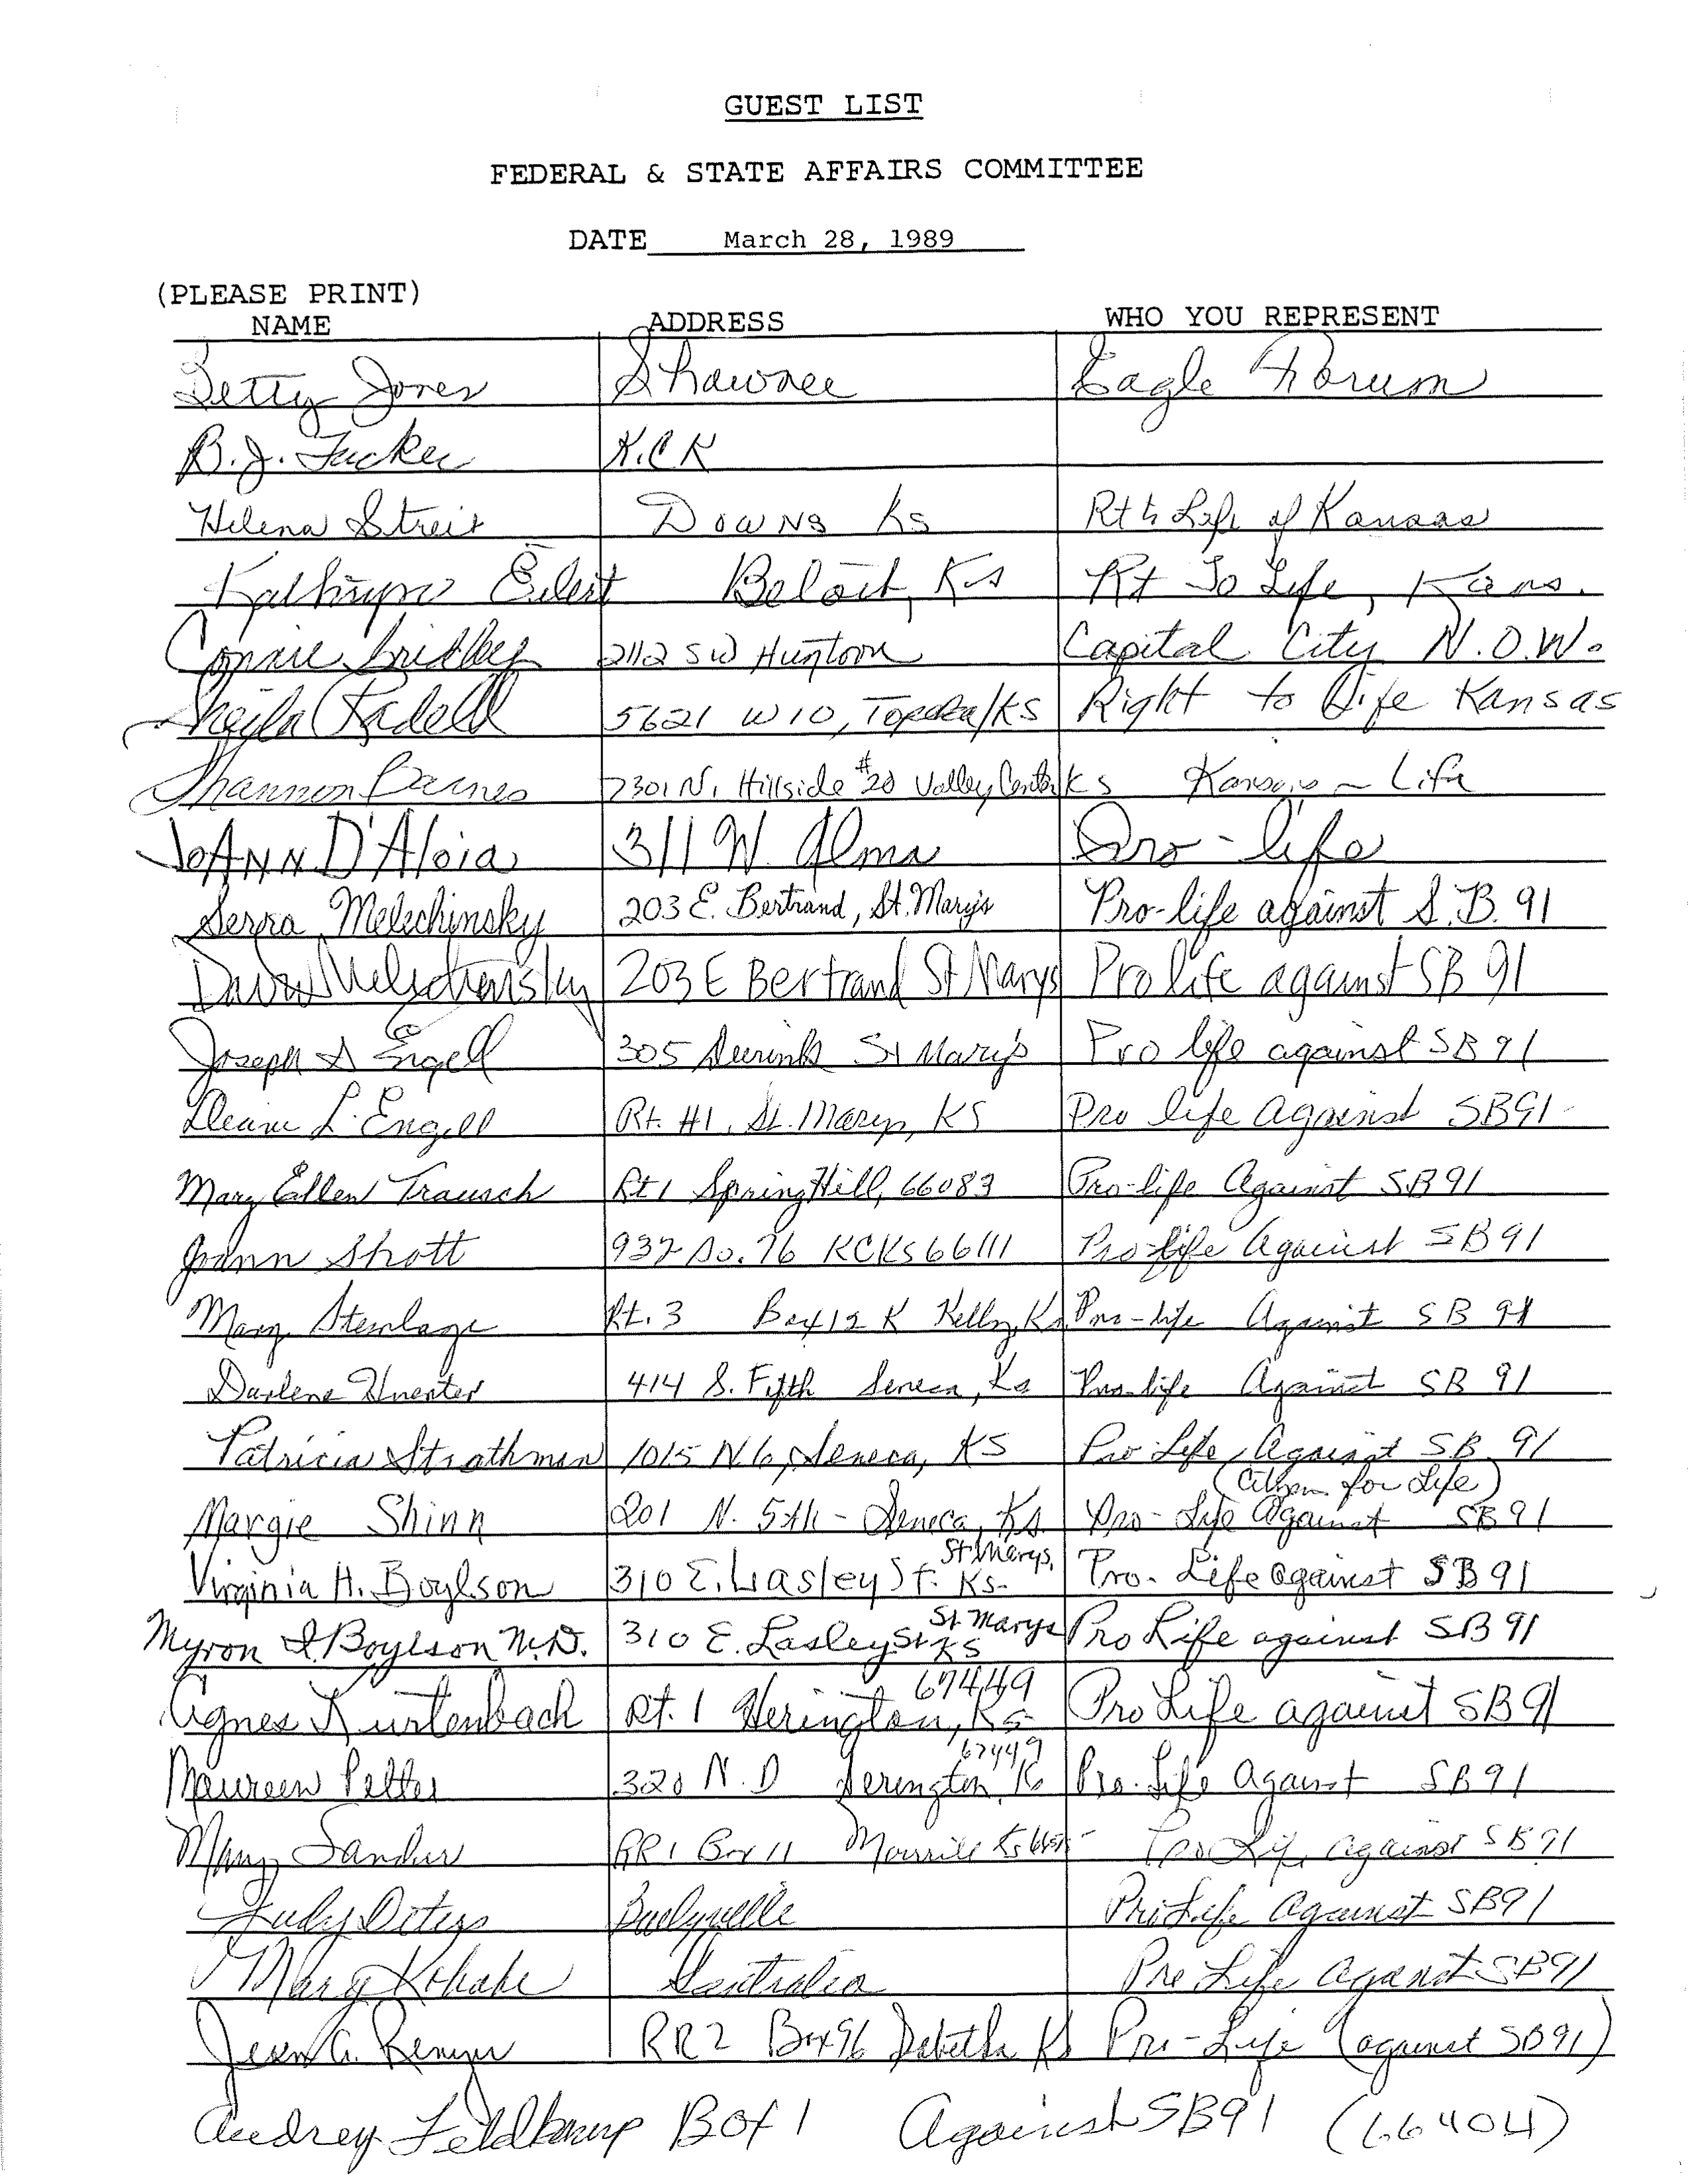 GUEST LIST
FEDERAL & STATE AFFAIRS COMMITTEE
DATE March 28, 1989
(PLEASE PRINT)
NAME ADDRESS WHO YOU REPRESENT
Betty Jones Shawnee Eagle Forum
B.J. Tucker K.C.K
Helena Streit Downs Ks Rt to Life of Kansas
Kathryn Eilert Beloit, Ks Rt To Life, Kans.
Connie 2112 SW Huntoon Capital City N.O.W.
Sheila Kadell 5621 W 10, Topeka/KS Right to Life Kansas
Shannon Barnes 7301 N. Hillside #20 Valley Center Ks Kansans Life
JoAnn D'Aloia 311 W. Alma Pro-life
Serra Melechinsky 203 E. Bertrand, St. Mary's Pro-life against S.B. 91
203 E Bertrand St Marys Pro life against SB 91
Joseph Engell 305 St Mary's Pro life against SB 91
L. Engell Rt. #1, St. Marys, KS Pro life Against SB91
Mary Ellen Trausch Rt 1 Spring Hill, 66083 Pro-life Against SB 91
Joann Shott 937 So. 76 KCKS 66111 Pro-life Against SB 91
Mary Rt. 3 Box 12 K Kelly, Ks Pro-life Against SB 91
Darlene 414 S. Fifth Seneca, Ks Pro-life Against SB 91
Patricia Strathman 1015 N 6, Seneca, KS Pro Life Against SB 91
(Citizen for Life)
Margie Shinn 201 N. 5th - Seneca, Ks. Pro-Life Against SB 91
Virginia H. Boylson 310 E. Lasley St. St Marys, Ks. Pro-Life against SB 91
Myron Boylson M.D. 310 E. Lasley St St Marys KS Pro Life against SB 91
Agnes Kurtenbach Rt. 1 Herington, Ks 67449 Pro Life against SB 91
Maureen 320 N. D Herington, 67449 Pro-Life Against SB 91
Mary Sander RR 1 Box 11 Morrill Ks Pro Life against SB 91
Judy Baileyville Pro Life Against SB91
Mary Kohake Centralia Pro Life Against SB91
Jean A. RR2 Box 96 Sabetha Ks Pro-Life (against SB91)
Audrey Feldkamp Box 1 Against SB91 (66404)